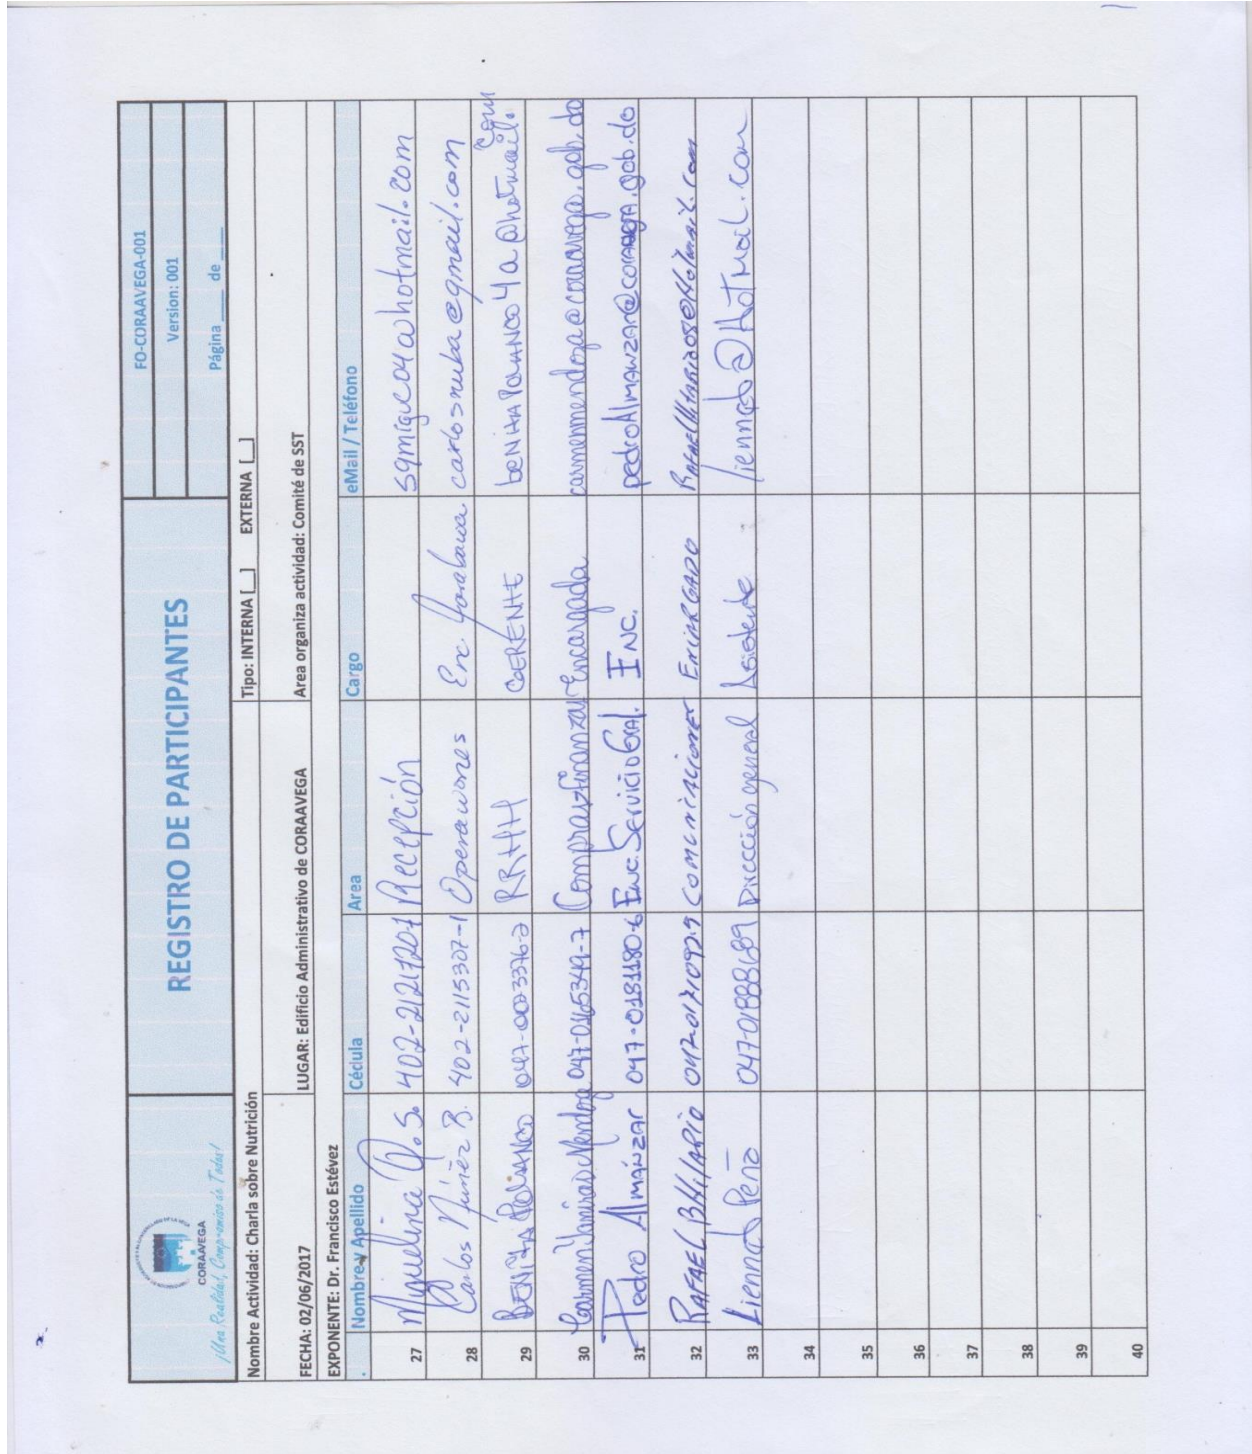 CORAAVEGA
¡Una Realidad, Compromiso de Todos!
REGISTRO DE PARTICIPANTES
FO-CORAAVEGA-001
Version: 001
Página ____ de ____
Nombre Actividad: Charla sobre Nutrición Tipo: INTERNA [__] EXTERNA [__]
FECHA: 02/06/2017 LUGAR: Edificio Administrativo de CORAAVEGA Area organiza actividad: Comité de SST
EXPONENTE: Dr. Francisco Estévez
. Nombre y Apellido Cédula Area Cargo eMail / Teléfono
27 Miguelina Q.S. Recepción
28 Carlos Núñez B. 402-2115307-1 Operaciones Enc. carlosnuba@gmail.com
29 BENITA POLANCO 047-0073376-2 RRHH GERENTE benitaPOLANCO4a@hotmail.com
30 Carmen Mendoza 047-0165349-7 Encargada carmenmendoza@coraavega.gob.do
31 Pedro Almánzar 047-0181180-6 Enc. Servicio Gral. Enc. pedroAlmanzar@coraavega.gob.do
32 RAFAEL Comunicaciones EncarGADO
33 Liennab Peña 047-01888689 Dirección general Asistente liennab@HotMail.com
34
35
36
37
38
39
40